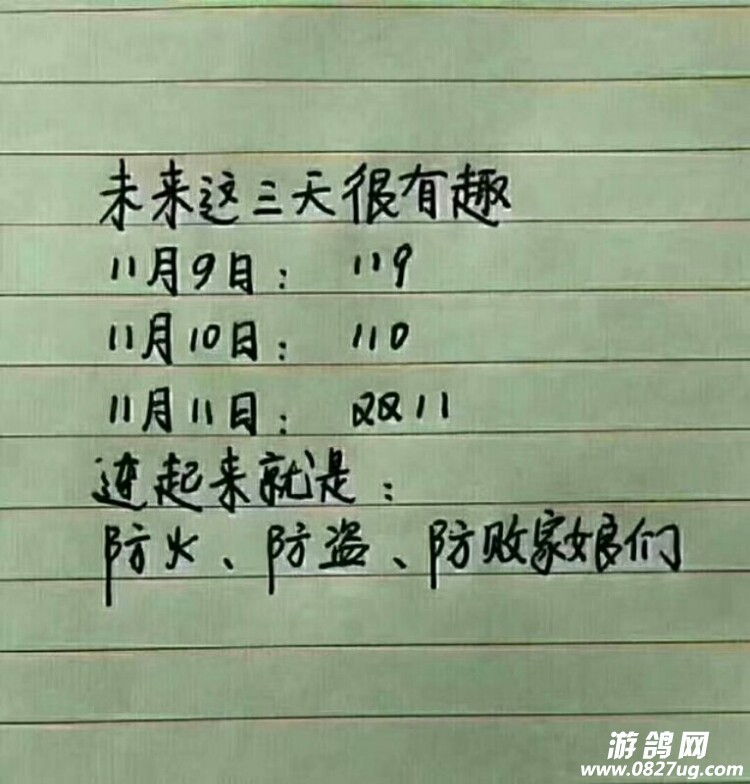 未来这三天很有趣
11月9日： 119
11月10日： 110
11月11日： 双双11
连起来就是：
防火、防盗、防败家娘们
游鸽网
www.0827ug.com